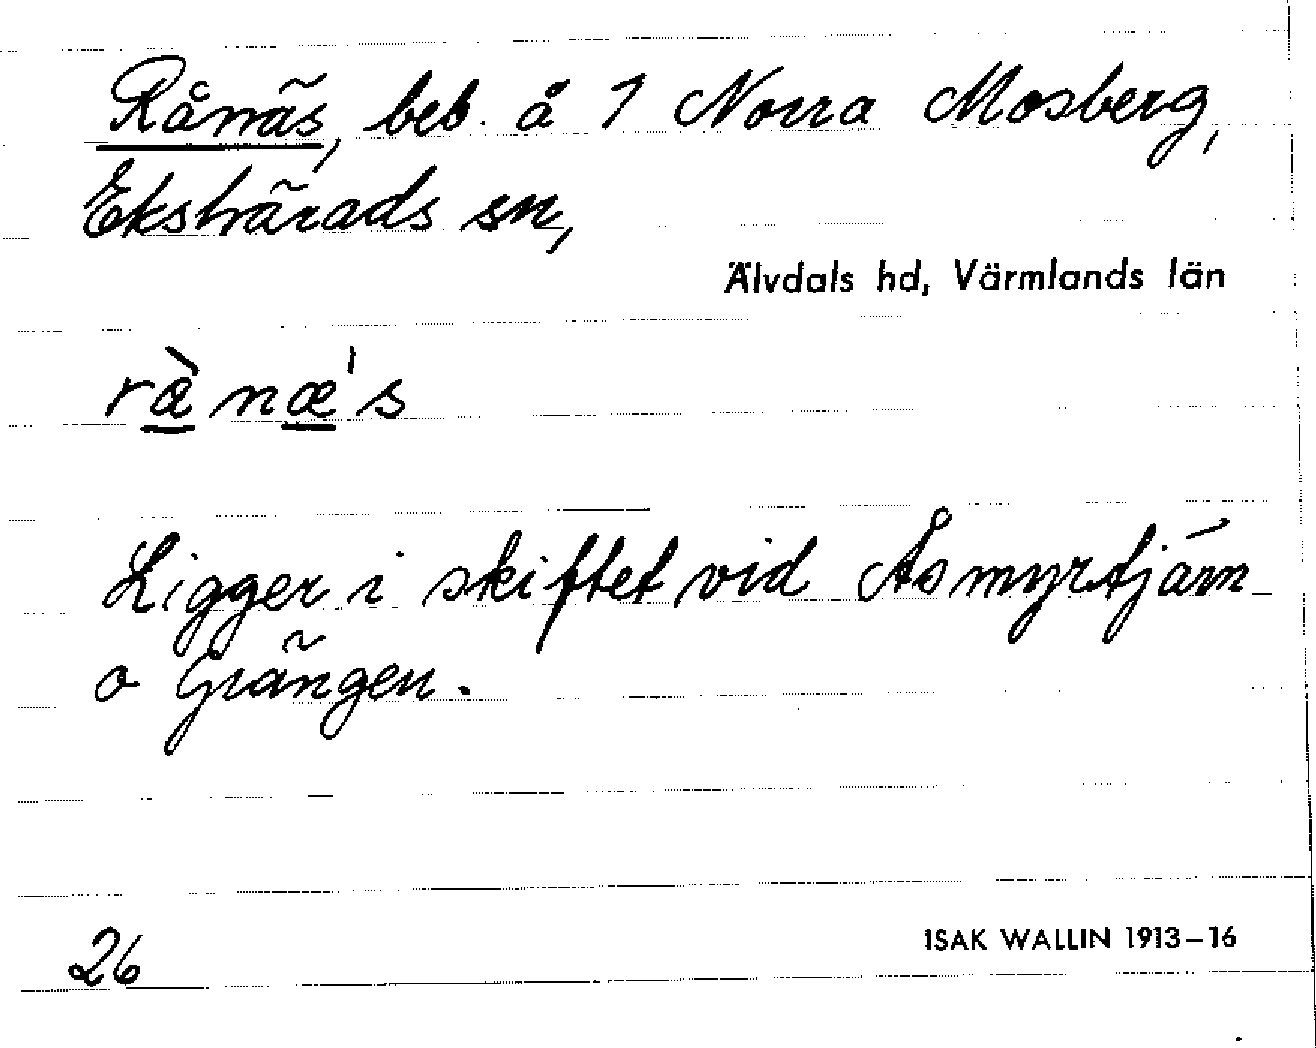 Rånäs, beb. å 1 Norra Mosberg,
Ekshärads sn,
Älvdals hd, Värmlands län
ræ̀næ's
Ligger i skiftet vid Åsmyrtjärn
o Grängen.
26
ISAK WALLIN 1913–16